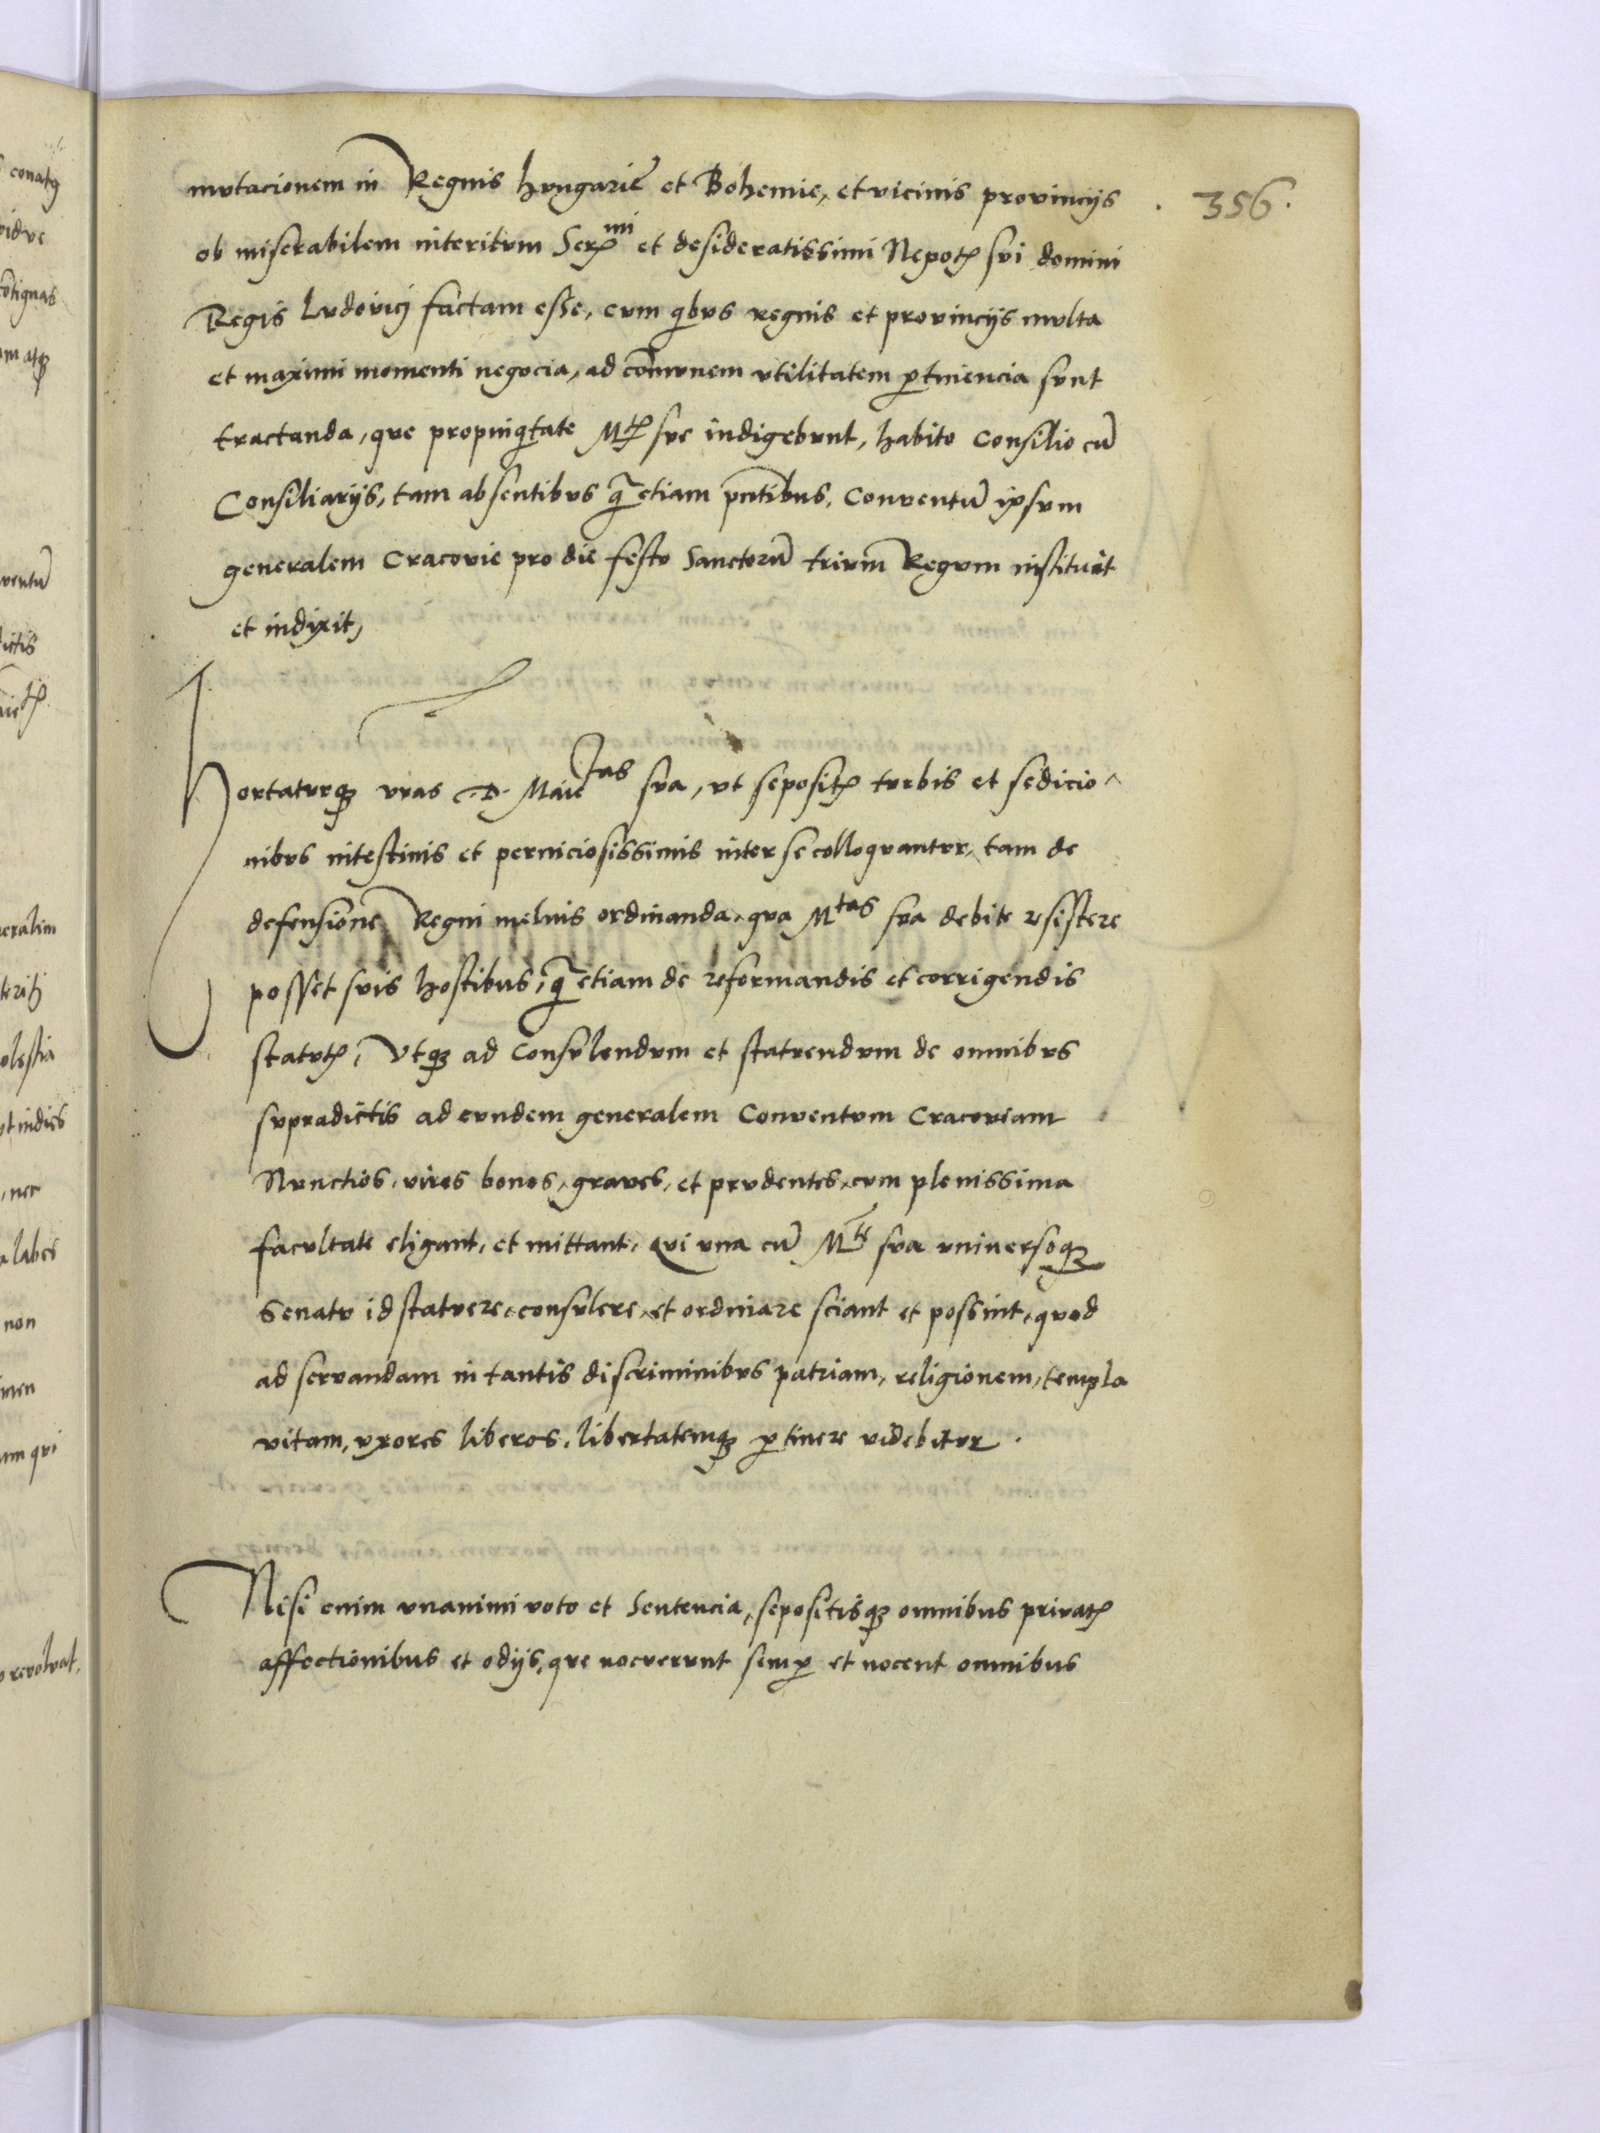 356.
mutacionem in Regnis hungarie et Bohemie, et vicinis provincijs
ob miserabilem interitum Ser^mi et desideratissimi Nepotis sui domini
Regis Ludovici factam esse, cum qibus regnis et provincijs multa
et maximi momenti negocia, ad com̄unem utilitatem ꝑtinencia sunt
tractanda, que propinqitate M^tis sue indigebunt, habito Consilio cū
Consiliarijs, tam absentibus q̄ etiam pn̄tibus, Conventū ipsum
generalem Cracovie pro die festo Sanctorū trium Regum instituit
et indixit,
Hortaturqꝫ vras D. Maie^tas sua, ut sepositis turbis et sedicio
nibus intestinis et perniciosissimis inter se colloquantur, tam de
defensione Regni melius ordinanda, qua M^tas sua debite resistere
posset suis hostibus, q̄ etiam de reformandis et corrigendis
statutis, Utqꝫ ad Consulendum et statuendum de omnibus
supradictis ad eundem generalem Conventum Cracoviam
Nunctios, viros bonos, graves, et prudentes, cum plenissima
facultate eligant, et mittant, qui una cū M^te sua universoqꝫ
Senatu id statuere, consulere, et ordinare sciant et possint, quod
ad servandam in tantis discriminibus patriam, religionem, templa
vitam, uxores liberos, libertatemqꝫ ꝑtinere videbitur.
Nisi enim unanimi voto et Sentencia, sepositisqꝫ omnibus privatis
affectionibus et odijs, que nocuerunt semꝑ et nocent omnibus